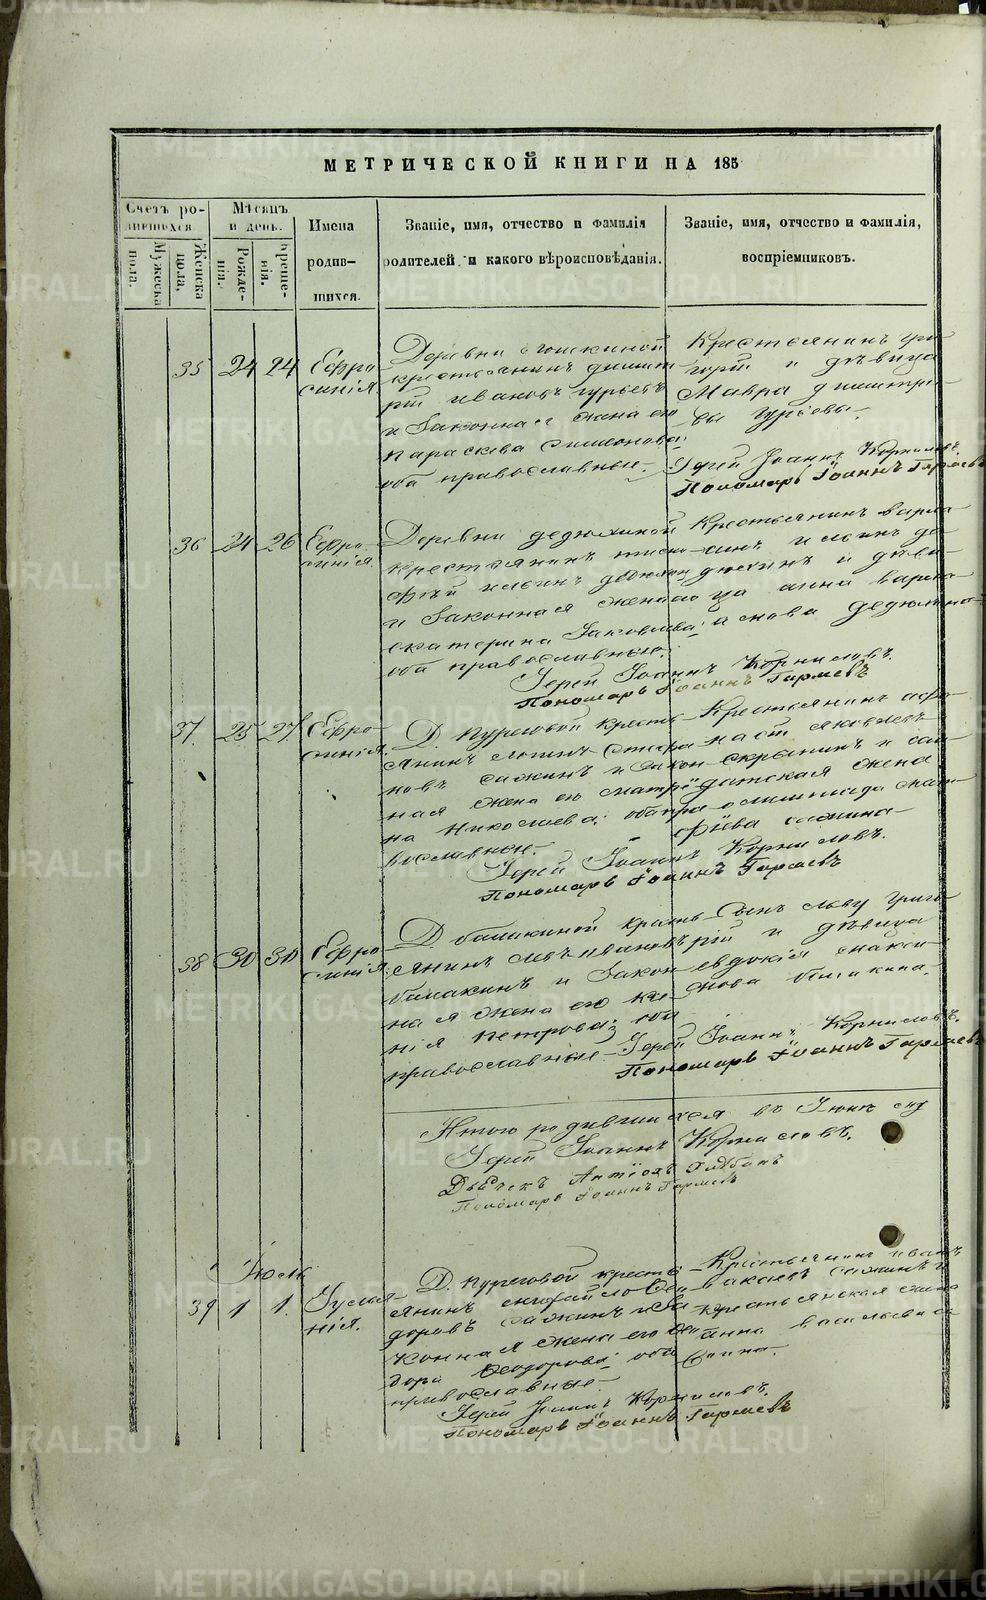 МЕТРИЧЕСКОЙ КНИГИ НА 185
Счетъ ро-
дившихся
Мужеска
пола.
Женска
пола.
Мѣсяцъ
и день.
Рожде-
нія.
Креще-
нія.
Имена
родив-
шихся.
Званіе, имя, отчество и фамилія
родителей, и какого вѣроисповѣданія.
Званіе, имя, отчество и фамилія,
воспріемниковъ.
35 24 24 Ефро
синія
Деревни
крестьянинъ Димит
рій Ивановъ Гурьевъ
и Законная жена его
Параскева Симеонова;
оба православные.
Крестьянинъ Гри
горій и дѣвица
Мавра Димитрі-
вы Гурьевы.
Іерей Іоаннъ Корниловъ.
Пономарь Іоаннъ Гармаевъ
36 24 26 Ефро-
синія.
Деревни Дедюхиной
крестьянинъ
и Законная жена его
Екатерина Іаковлева;
оба православные.
Крестьянинъ Варла
и дѣви-
ца Анна Варла
амова Дедюхина
Іерей Іоаннъ Корниловъ.
Пономарь Іоаннъ Гармаевъ
37. 25 27 Ефро-
синія.
Д. Пуреговой кресть-
янинъ
новъ Сажинъ и Закон
ная жена его Матрё
на Николаева; оба пра
вославные.
Крестьянинъ
Яковлевъ
и сол-
датская жена
Сажина
Іерей Іоаннъ Корниловъ.
Пономарь Іоаннъ Гармаевъ
38 30 30 Ефро
синія.
Д. Балакиной кресть-
янинъ Левъ Ивановъ
Балакинъ и Закон
ная жена его Ксе-
нія Петрова; оба
православные
Сынъ Льву Григо-
рій и дѣвица
Евдокія Макси-
мова Балакина.
Іерей Іоаннъ Корниловъ.
Пономарь Іоаннъ Гармаевъ
Итого родившихся въ Іюнѣ
Іерей Іоаннъ Корниловъ.
Дьячекъ
Пономарь Іоаннъ Гармаевъ
Іюль
39 1 1. Гулья-
нія.
Д. Пуреговой кресть
янинъ Михайло Ѳео
доровъ Сажинъ и За
конная жена его Ѳео
дора Ѳеодорова; оба
православные
Крестьянинъ Иванъ
Сажинъ и
крестьянская
Анна Васильева
Іерей Іоаннъ Корниловъ.
Пономарь Іоаннъ Гармаевъ
METRIKI.GASO-URAL.RU